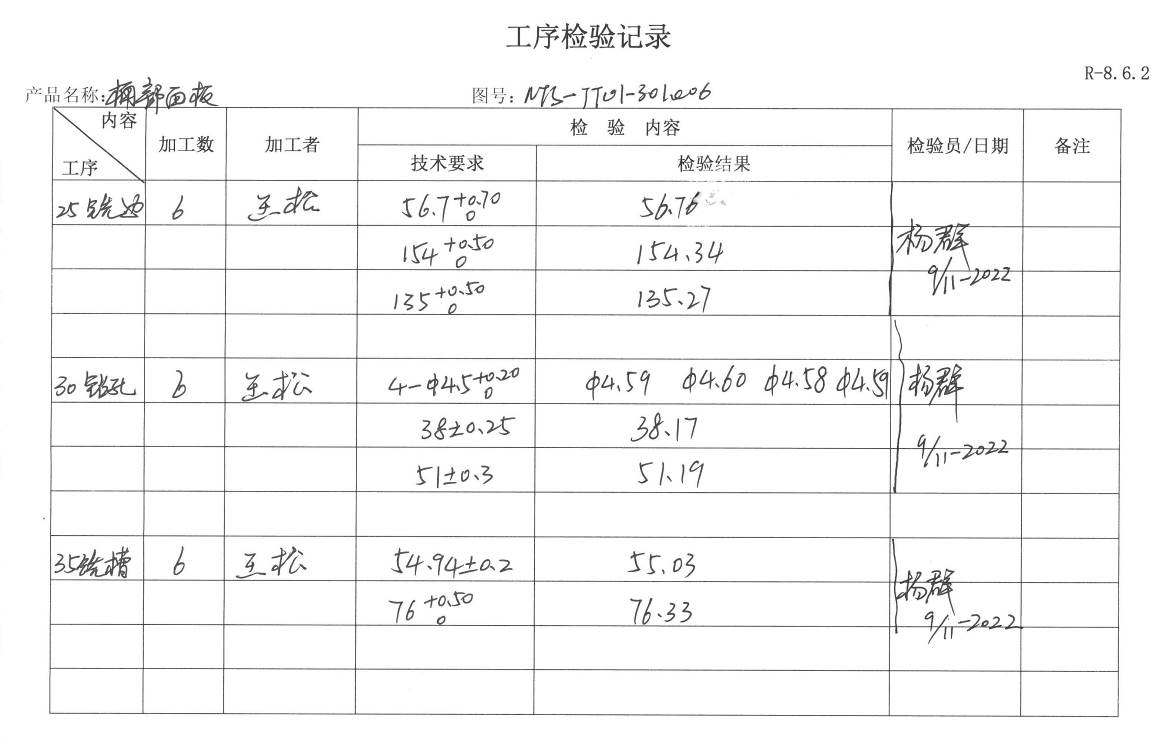 工序检验记录
R-8.6.2
产品名称: 面板 图号:
内容 工序 加工数 加工者 检 验 内容 检验员/日期 备注
技术要求 检验结果
25 铣边 6 松 56.7 +0.70 0 56.76 杨群 9/11-2022
154 +0.50 0 154.34
135 +0.50 0 135.27
30 钻孔 6 松 4-φ4.5 +0.20 0 φ4.59 φ4.60 φ4.58 φ4.59 杨群 9/11-2022
38±0.25 38.17
51±0.3 51.19
35 铣槽 6 松 54.94±0.2 55.03 杨群 9/11-2022
76 +0.50 0 76.33